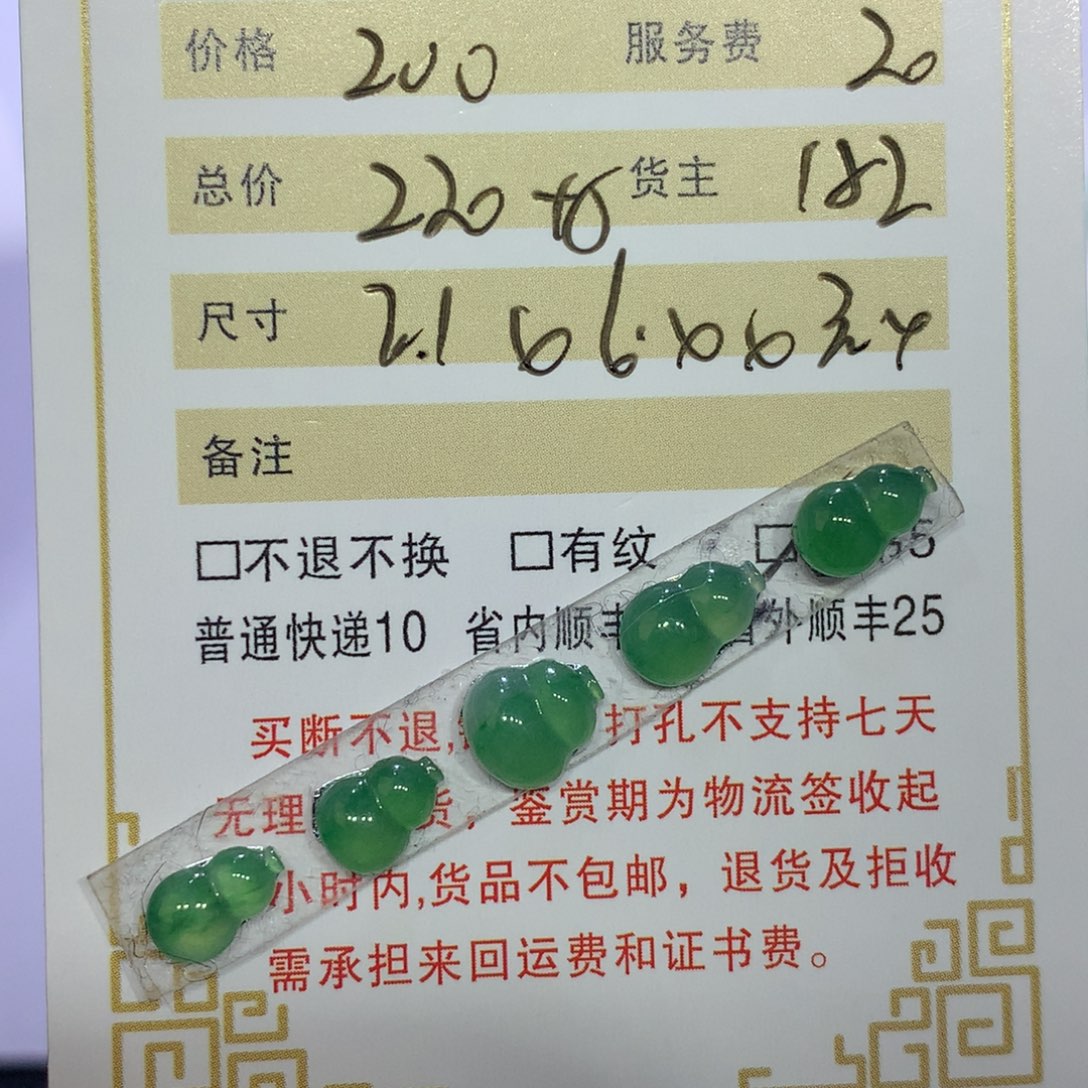 价格 200 服务费 20
总价 220 货主 182
尺寸
备注
□不退不换 □有纹 5
普通快递10 省内顺丰 省外顺丰25
买断不退, 打孔不支持七天
无理 货，鉴赏期为物流签收起
小时内,货品不包邮，退货及拒收
需承担来回运费和证书费。